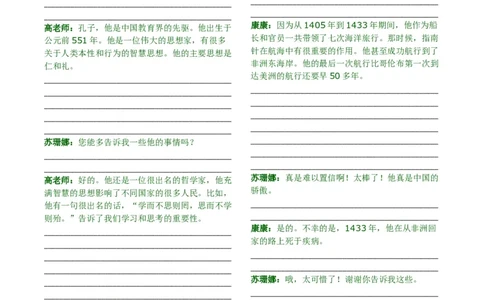 高老师：孔子，他是中国教育界的先驱。他出生于
公元前 551 年。他是一位伟大的思想家，有很多
关于人类本性和行为的智慧思想。他的主要思想是
仁和礼。
苏珊娜：您能多告诉我一些他的事情吗？
高老师：好的。他还是一位很出名的哲学家，他充
满智慧的思想影响了不同国家的很多人民。比如，
他有一句很出名的话，“学而不思则罔，思而不学
则殆。”告诉了我们学习和思考的重要性。
康康：因为从 1405 年到 1433 年期间，他作为船
长和官员一共带领了七次海洋旅行。那时候，指南
针在航海中有很重要的作用。他甚至成功航行到了
非洲东海岸。他的最后一次航行比哥伦布第一次到
达美洲的航行还要早 50 多年。
苏珊娜：真是难以置信啊！太棒了！他真是中国的
骄傲。
康康：是的。不幸的是，1433 年，他在从非洲回
家的路上死于疾病。
苏珊娜：哦，太可惜了！谢谢你告诉我这些。